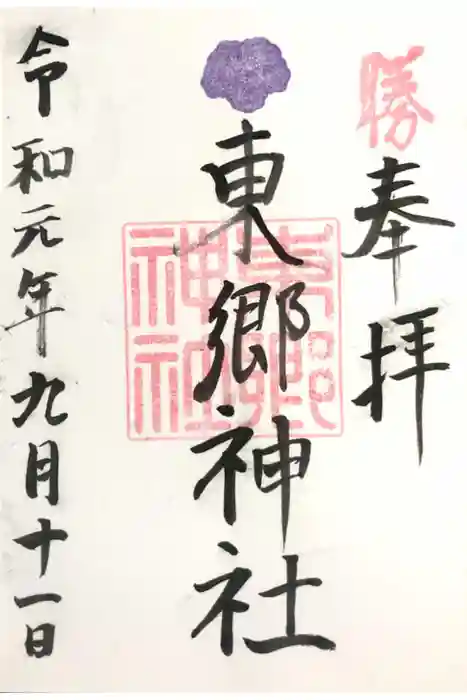 勝
奉拝
東郷神社
東郷神社
令和元年九月十一日